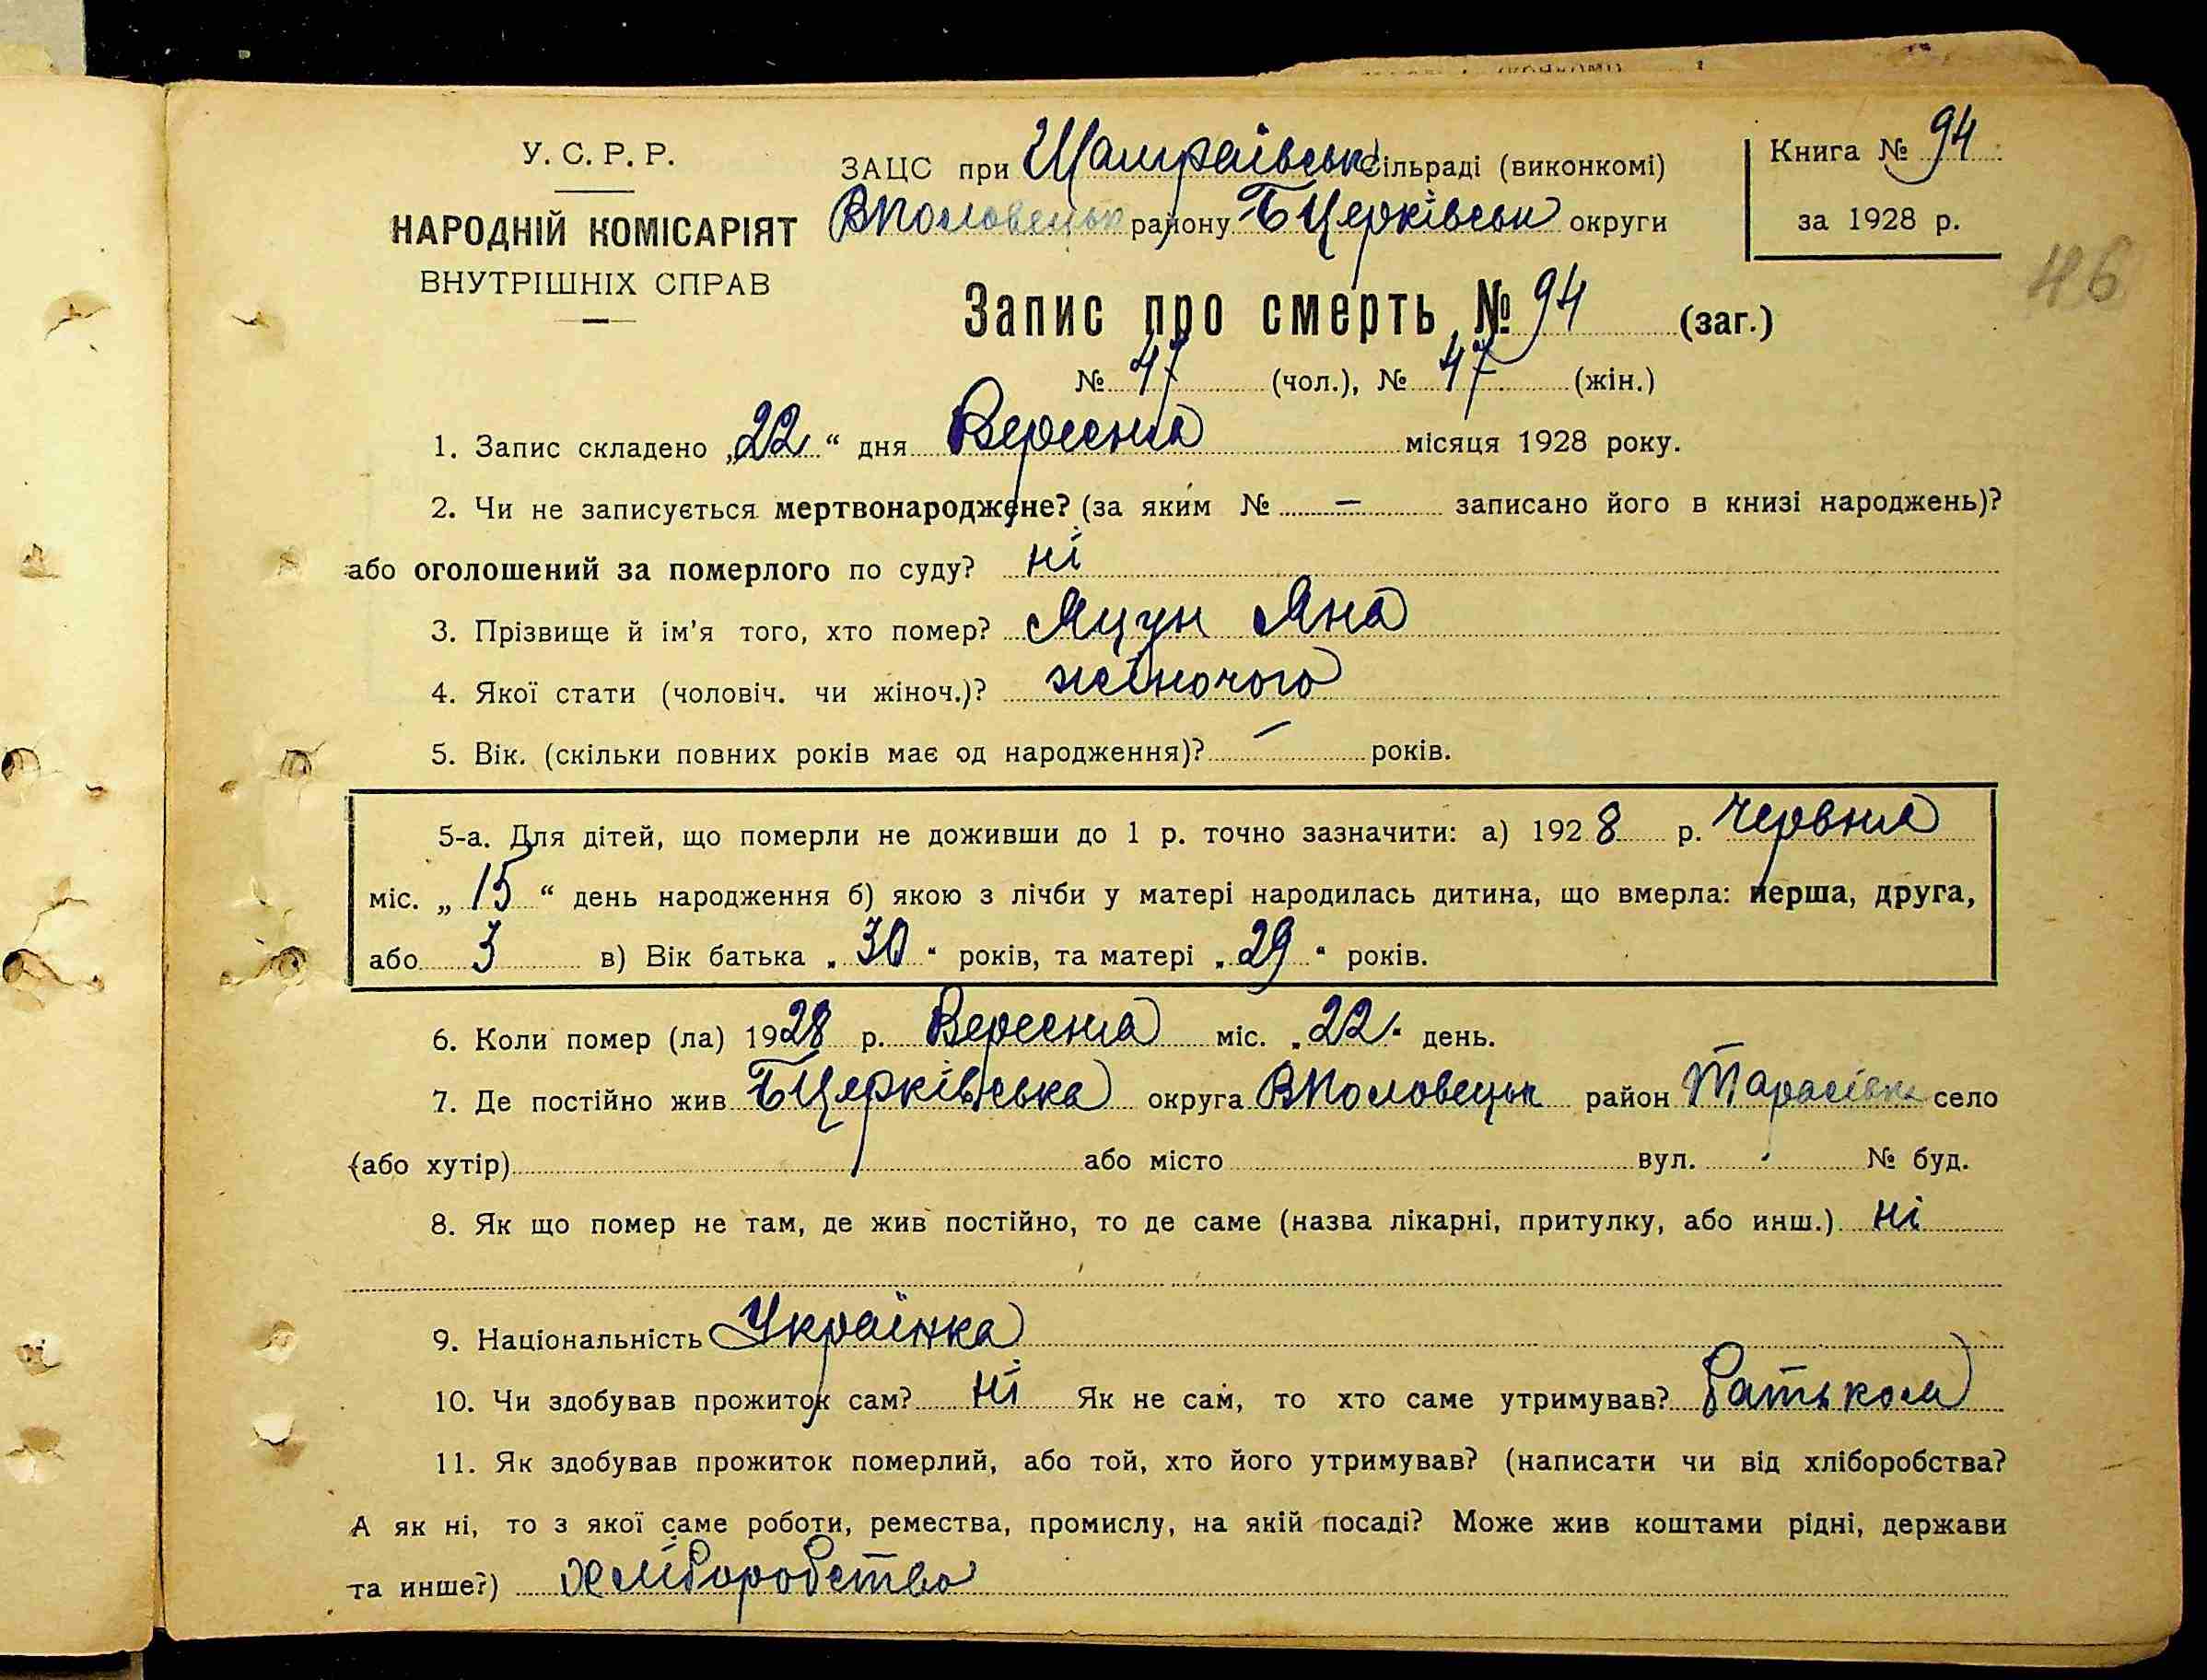 У. С. Р. Р.
НАРОДНІЙ КОМІСАРІЯТ
ВНУТРІШНІХ СПРАВ
ЗАЦС при Шамраївські сільраді (виконкомі)
ВПоловецьк району БЦерківськ округи
Книга № 94
за 1928 р.
46
Запис про смерть № 94 (заг.)
№ 47 (чол.), № 47 (жін.)
1. Запис складено „22“ дня Вересня місяця 1928 року.
2. Чи не записується мертвонароджене? (за яким № — записано його в книзі народжень)?
або оголошений за померлого по суду? ні
3. Прізвище й ім'я того, хто помер? Яцун Яна
4. Якої стати (чоловіч. чи жіноч.)? жіночого
5. Вік. (скільки повних років має од народження)? — років.
5-а. Для дітей, що померли не доживши до 1 р. точно зазначити: а) 1928 р. Червня
міс. „15“ день народження б) якою з лічби у матері народилась дитина, що вмерла: перша, друга,
або 3 в) Вік батька „30“ років, та матері „29“ років.
6. Коли помер (ла) 1928 р. Вересня міс. „22“ день.
7. Де постійно жив БЦерківська округа ВПоловецьк район Тарасівка село
(або хутір) або місто вул. № буд.
8. Як що помер не там, де жив постійно, то де саме (назва лікарні, притулку, або инш.) ні
9. Національність Українка
10. Чи здобував прожиток сам? ні Як не сам, то хто саме утримував? батьком
11. Як здобував прожиток померлий, або той, хто його утримував? (написати чи від хліборобства?
А як ні, то з якої саме роботи, ремества, промислу, на якій посаді? Може жив коштами рідні, держави
та инше?) хліборобство